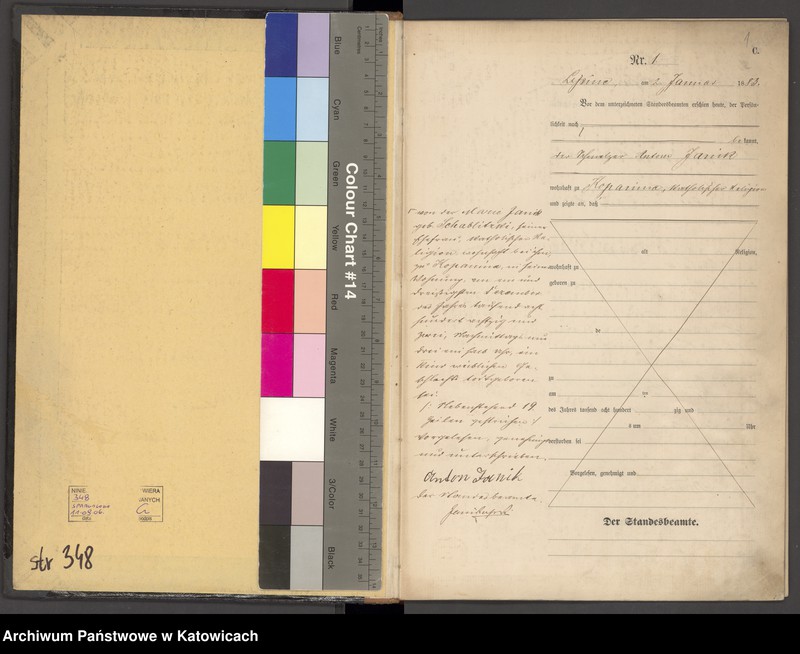 NINIE
WIERA
348
JANYCH
str 348
Centimetres
Inches
Colour Chart #14
Blue
Cyan
Green
Yellow
Red
Magenta
White
3/Color
Black
C.
Nr. 1
am 2 Januar 1883.
Vor dem unterzeichneten Standesbeamten erschien heute, der Persön-
lichkeit nach
be kannt,
der Anton Janik
wohnhaft zu Kopanina, katholischer Religion
und zeigte an, daß
von der Janik
geb.
Ehefrau, katholischer Re-
ligion, wohnhaft bei ihm
zu Kopanina, in seiner
Wohnung, am ein und
dreißigsten Dezember
des Jahres tausend acht
hundert achtzig und
zwei, Nachmittags um
drei ein halb Uhr, ein
Kind weiblichen Ge-
schlechts todtgeboren
sei.
Nebenstehend 19
Zeilen gestrichen
Vorgelesen, genehmigt
und unterschrieben.
Anton Janik
Der Standesbeamte.
alt
Religion,
wohnhaft zu
geboren zu
de
zu
am
ten
des Jahres tausend acht hundert zig und
um Uhr
verstorben sei
Vorgelesen, genehmigt und
Der Standesbeamte.
Archiwum Państwowe w Katowicach